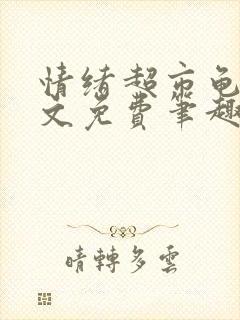 情绪超市龟
文免费笔趣
晴轉多雲